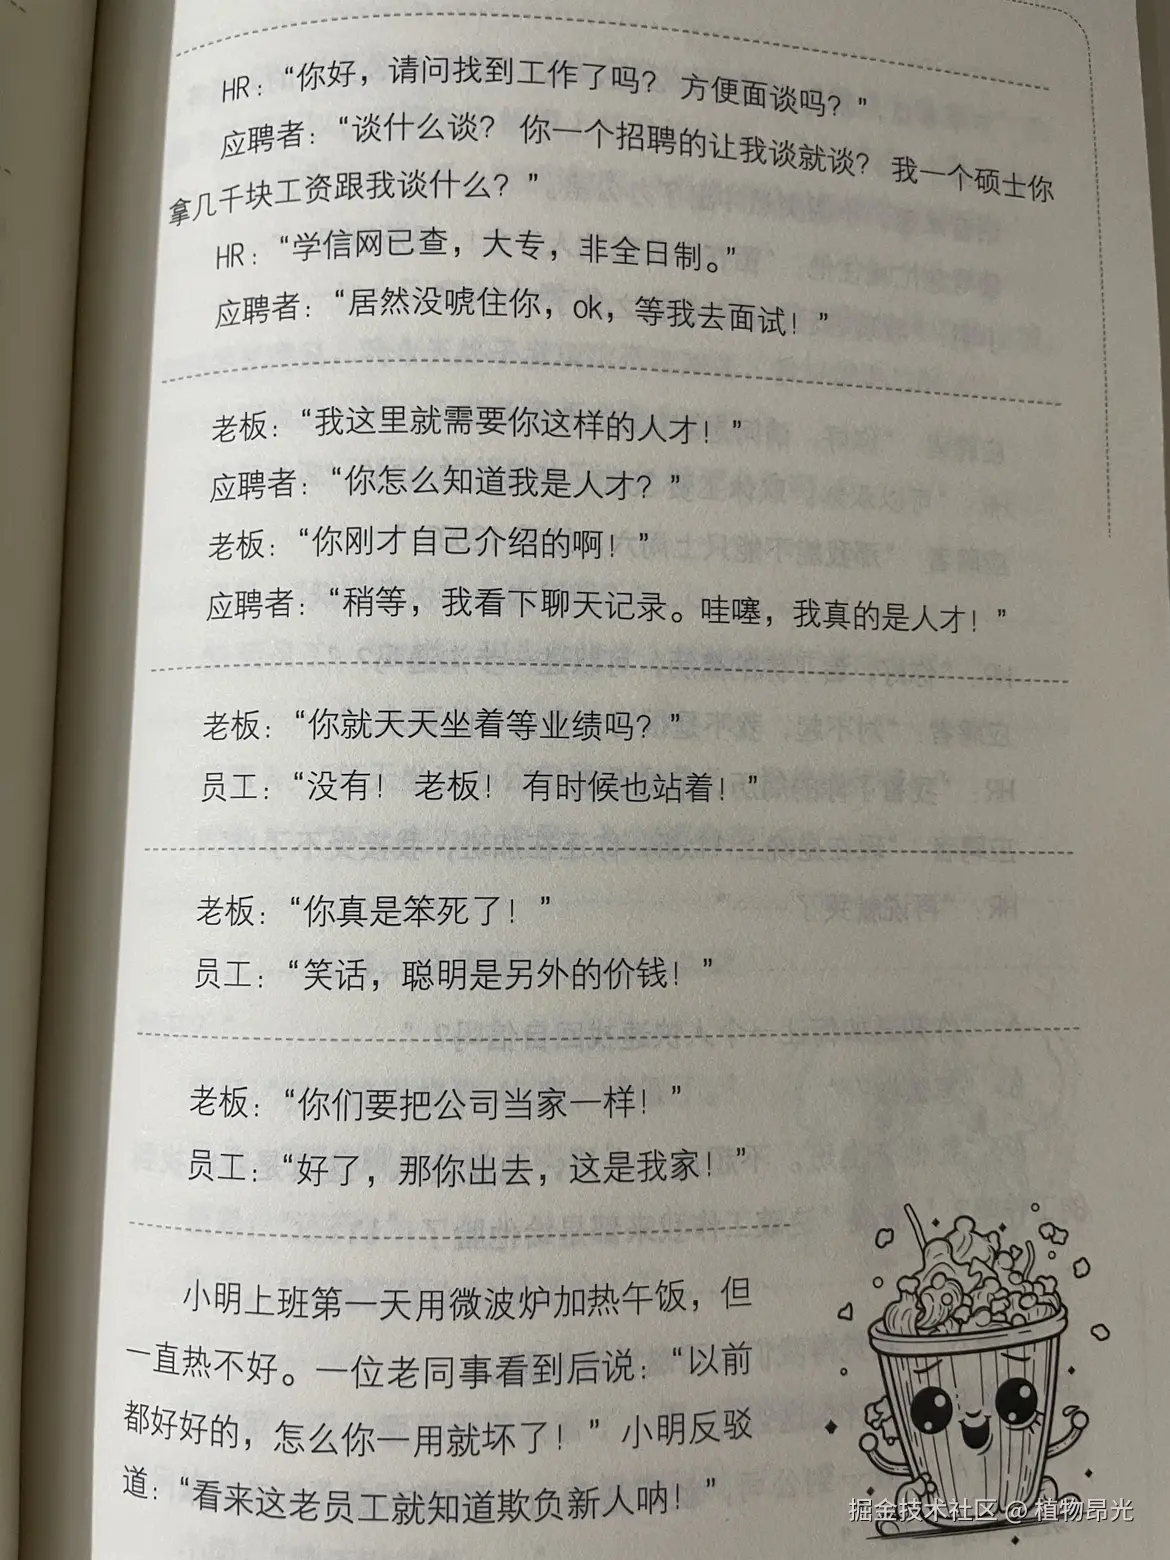 HR：“你好，请问找到工作了吗？ 方便面谈吗？”
应聘者：“谈什么谈？ 你一个招聘的让我谈就谈？ 我一个硕士你
拿几千块工资跟我谈什么？”
HR：“学信网已查，大专，非全日制。”
应聘者：“居然没唬住你，ok，等我去面试！”
老板：“我这里就需要你这样的人才！”
应聘者：“你怎么知道我是人才？”
老板：“你刚才自己介绍的啊！”
应聘者：“稍等，我看下聊天记录。哇噻，我真的是人才！”
老板：“你就天天坐着等业绩吗？”
员工：“没有！ 老板！ 有时候也站着！”
老板：“你真是笨死了！”
员工：“笑话，聪明是另外的价钱！”
老板：“你们要把公司当家一样！”
员工：“好了，那你出去，这是我家！”
小明上班第一天用微波炉加热午饭，但
一直热不好。一位老同事看到后说：“以前
都好好的，怎么你一用就坏了！”小明反驳
道：“看来这老员工就知道欺负新人呐！”
掘金技术社区 @ 植物昂光